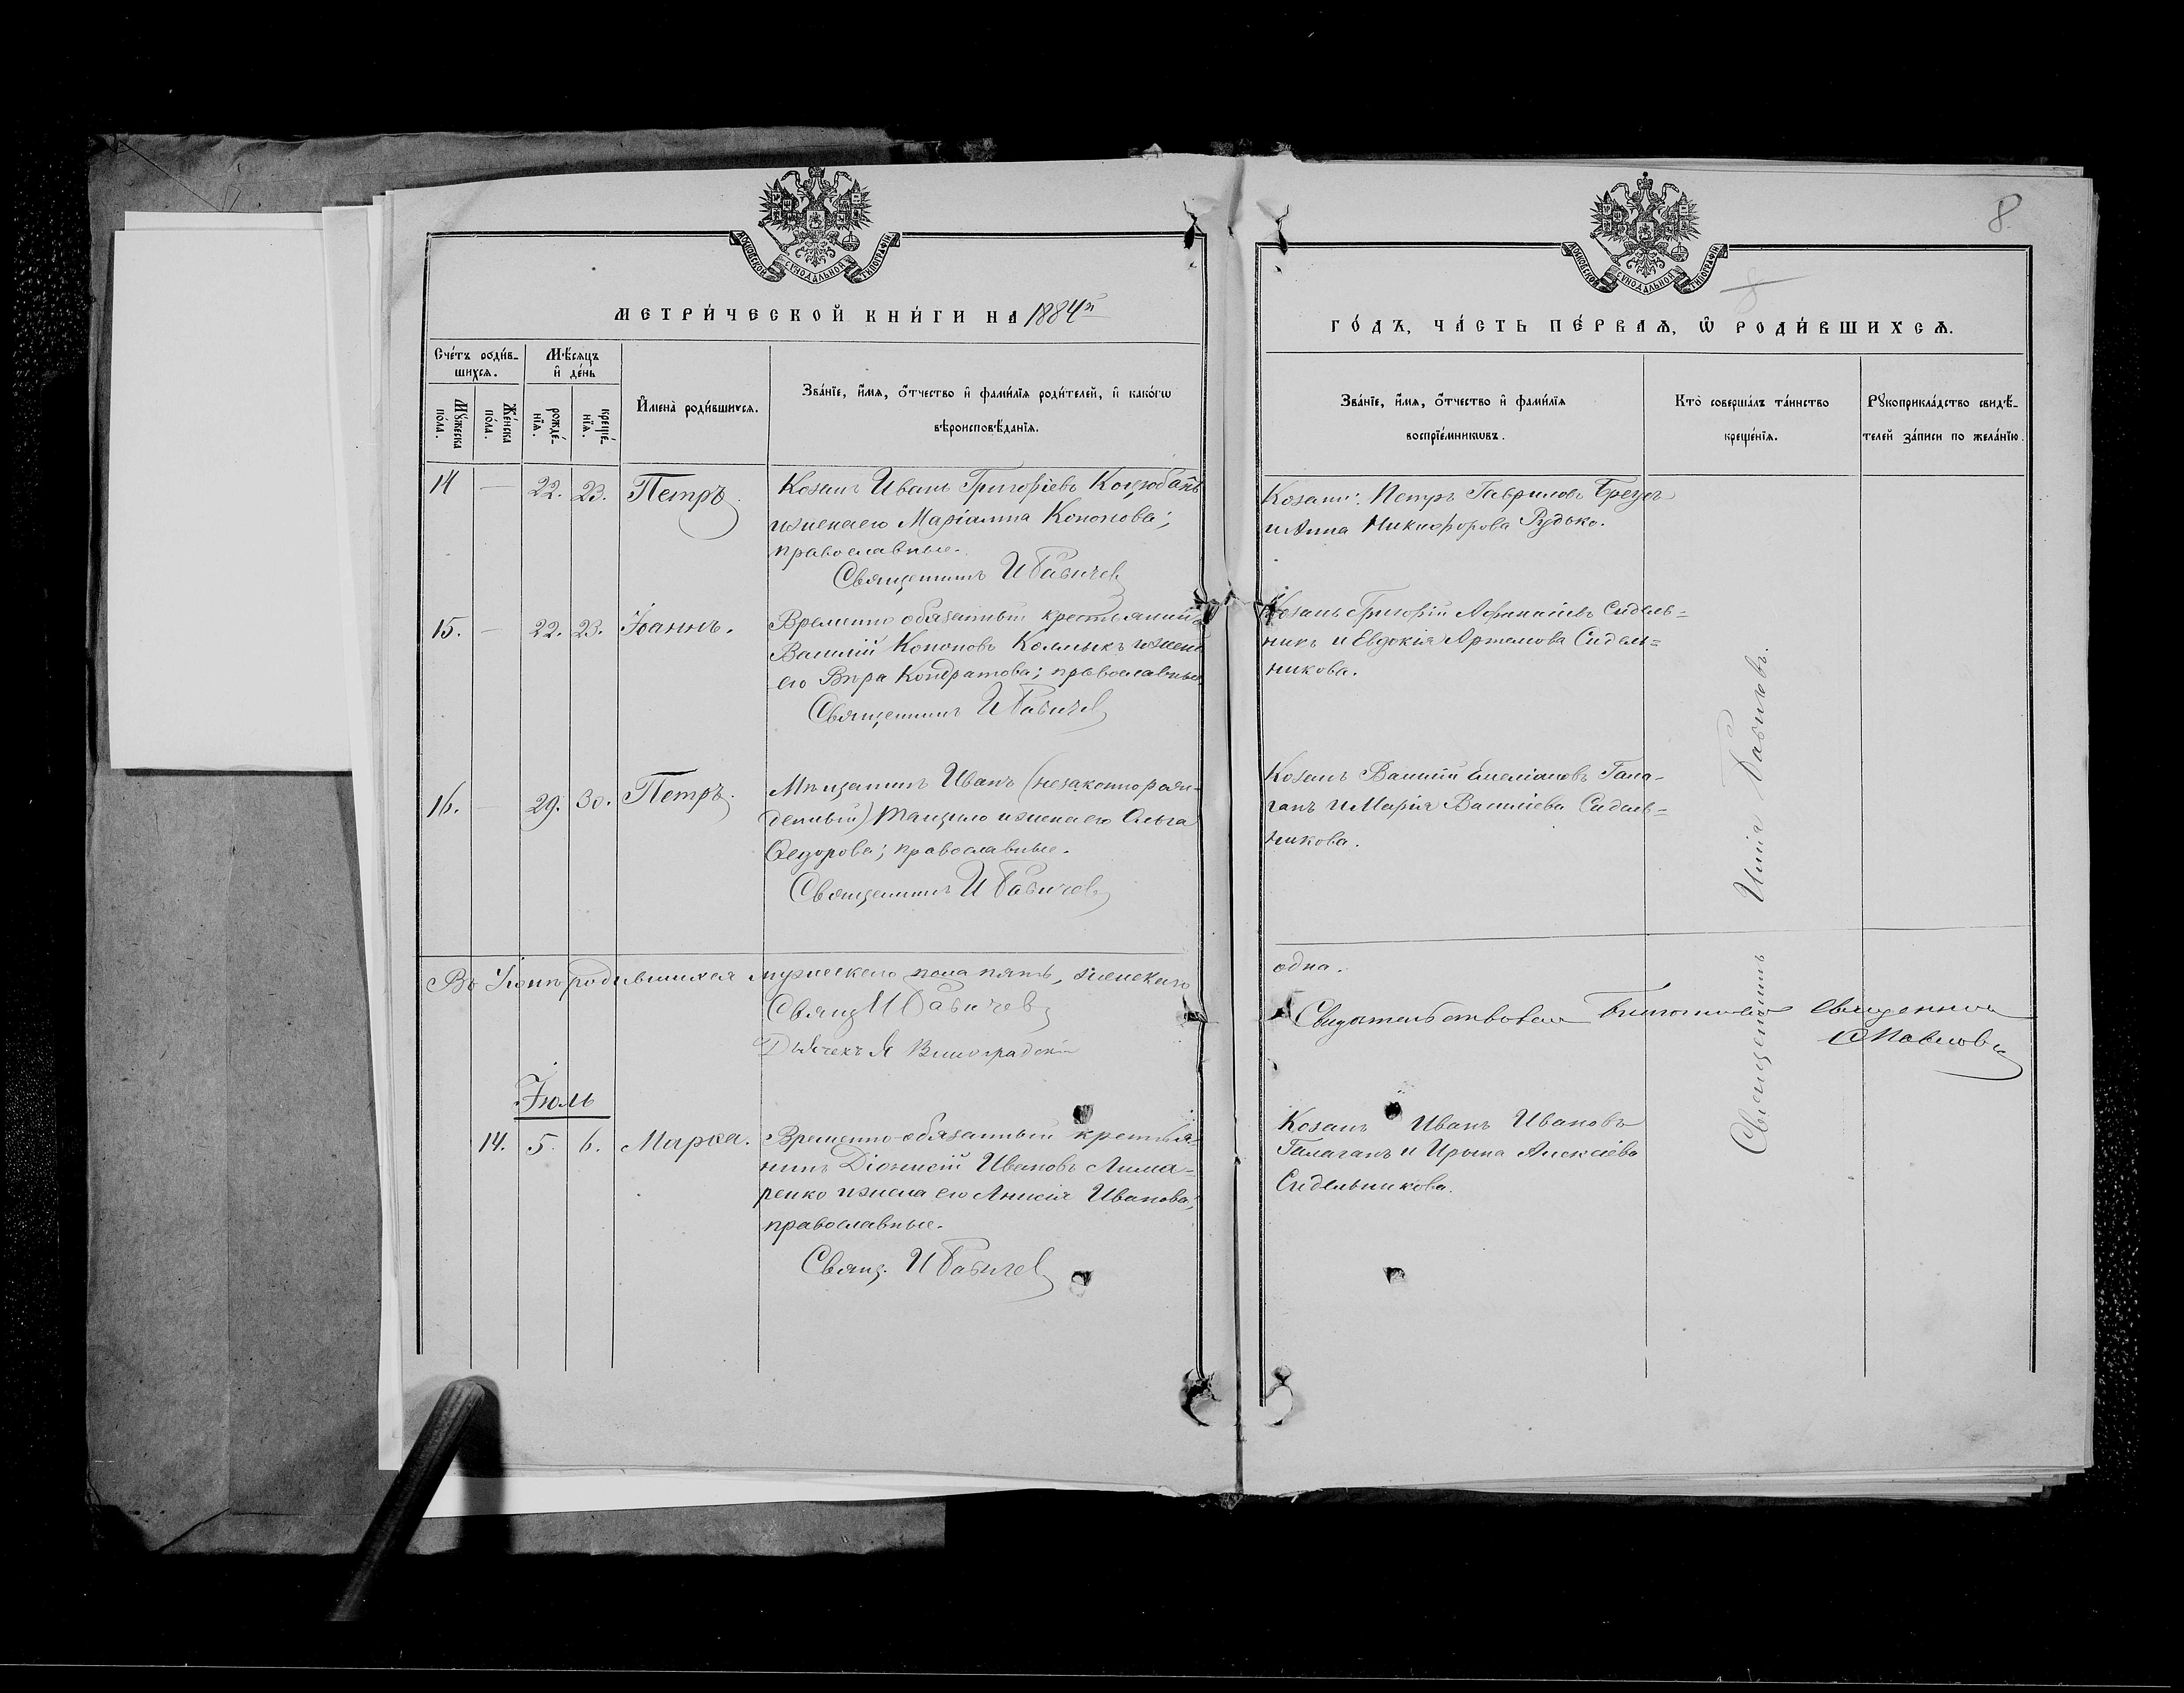 МОСКОВСКОЙ СѴНОДАЛЬНОЙ ТИПОГРАФІИ
МЕТРИ́ЧЕСКОЙ КНИ́ГИ НА 1884й
Сче́тъ роди́в-
шихсѧ.
Мѣ́сѧцъ
и҆ де́нь
Мꙋ́жеска
по́ла.
Же́нска
по́ла.
рожде́-
нїѧ.
креще́-
нїѧ.
И҆мена̀ роди́вшихсѧ.
Зва́нїе, и҆́мѧ, ѻ҆́тчество и҆ фами́лїѧ роди́телей, и҆ како́гѡ
вѣроисповѣ́данїѧ.
14 — 22. 23. Петръ.
Козакъ Иванъ Григоріевъ Коцюбанъ
и жена его Маріанна Кононова;
православные.
Священникъ И Бабичев
15. — 22. 23. Іоаннъ.
Временно обязанный крестьянинъ
Василій Кононовъ Калмыкъ и жена
его Вѣра Кондратова; православные
Священникъ И Бабичев
16. — 29. 30. Петръ.
Мѣщанинъ Иванъ (незаконнорож-
денный) и жена его Ольга
Ѳедорова; православные.
Священникъ И Бабичев
Въ Іюнѣ родившихся мужескаго пола пять, женскаго
Свящ И Бабичев
Дьячекъ Я Виноградскій
Іюль
14. 5. 6. Марѳа.
Временно-обязанный крестья-
нинъ Діонисій Ивановъ Лима-
ренко и жена его Анисія Иванова;
православные.
Свящ. И Бабичев
8.
МОСКОВСКОЙ СѴНОДАЛЬНОЙ ТИПОГРАФІИ
8
ГО́ДЪ, ЧА́СТЬ ПЕ́РВАѦ, Ѽ РОДИ́ВШИХСѦ.
Зва́нїе, и҆́мѧ, ѻ҆́тчество и҆ фами́лїѧ
воспрїе́мникѡвъ.
Кто̀ соверша́лъ та́инство
креще́нїѧ.
Рꙋкоприкла́дство свидѣ́-
телей за́писи по жела́нїю.
Козаки: Петръ Гавриловъ
и Анна Никифорова Рудько.
Козакъ Григорій Афанасіевъ Сидель=
никъ и Евдокія Артемова Сидель=
никова.
Козакъ Василій Емеліановъ Гала-
ганъ и Марія Василіева Сидель=
никова.
одна.
Свидетельствовал Благочинный Священник
Павлов
Козакъ Иванъ Ивановъ
Галаганъ и Ирина Алексіева
Сидельникова.
Священникъ Илія Бабичевъ.